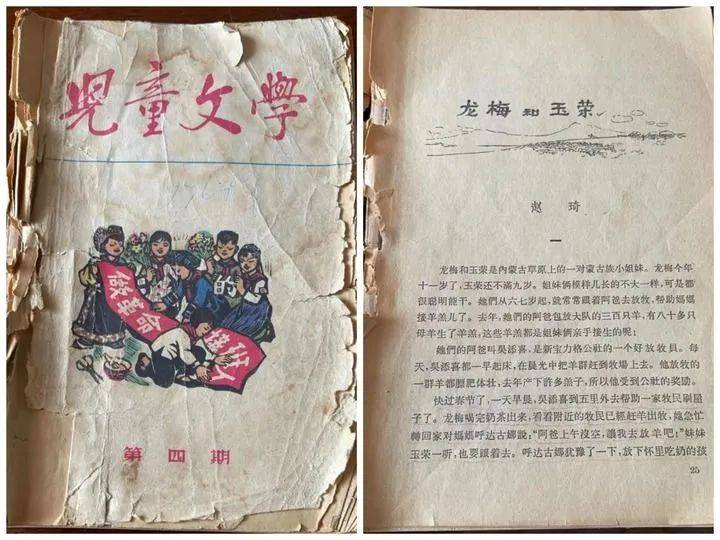 兒童文學
1964
做革命
的
接班人
第四期
龙梅和玉荣
赵琦
一
龙梅和玉荣是內蒙古草原上的一对蒙古族小姐妹。龙梅今年
十一岁了,玉荣还不滿九岁。姐妹俩模样儿长的不大一样,可是都
很聪明能干。她們从六七岁起,就常常跟着阿爸去放牧,帮助媽媽
接羊羔儿了。去年,她們的阿爸包放大队的三百只羊,有八十多只
母羊生了羊羔,这些羊羔都是姐妹俩亲手接生的呢!
她們的阿爸叫吳添喜,是新宝力格公社的一个好放牧員。每
天,吳添喜都一早起床,在晨光中把羊群赶到牧場上去。他放牧的
一群羊都膘肥体壮,去年产下許多羔子,所以他受到公社的奖励。
快过春节了,一天早晨,吳添喜到五里外去帮助一家牧民刷屋
子了。龙梅喝完奶茶出来,看看附近的牧民已經赶羊出牧,她急忙
轉回家对媽媽呼达古娜說:“阿爸上午沒空,讓我去放羊吧!”妹妹
玉荣一听,也要跟着去。呼达古娜犹豫了一下,放下怀里吃奶的孩
25